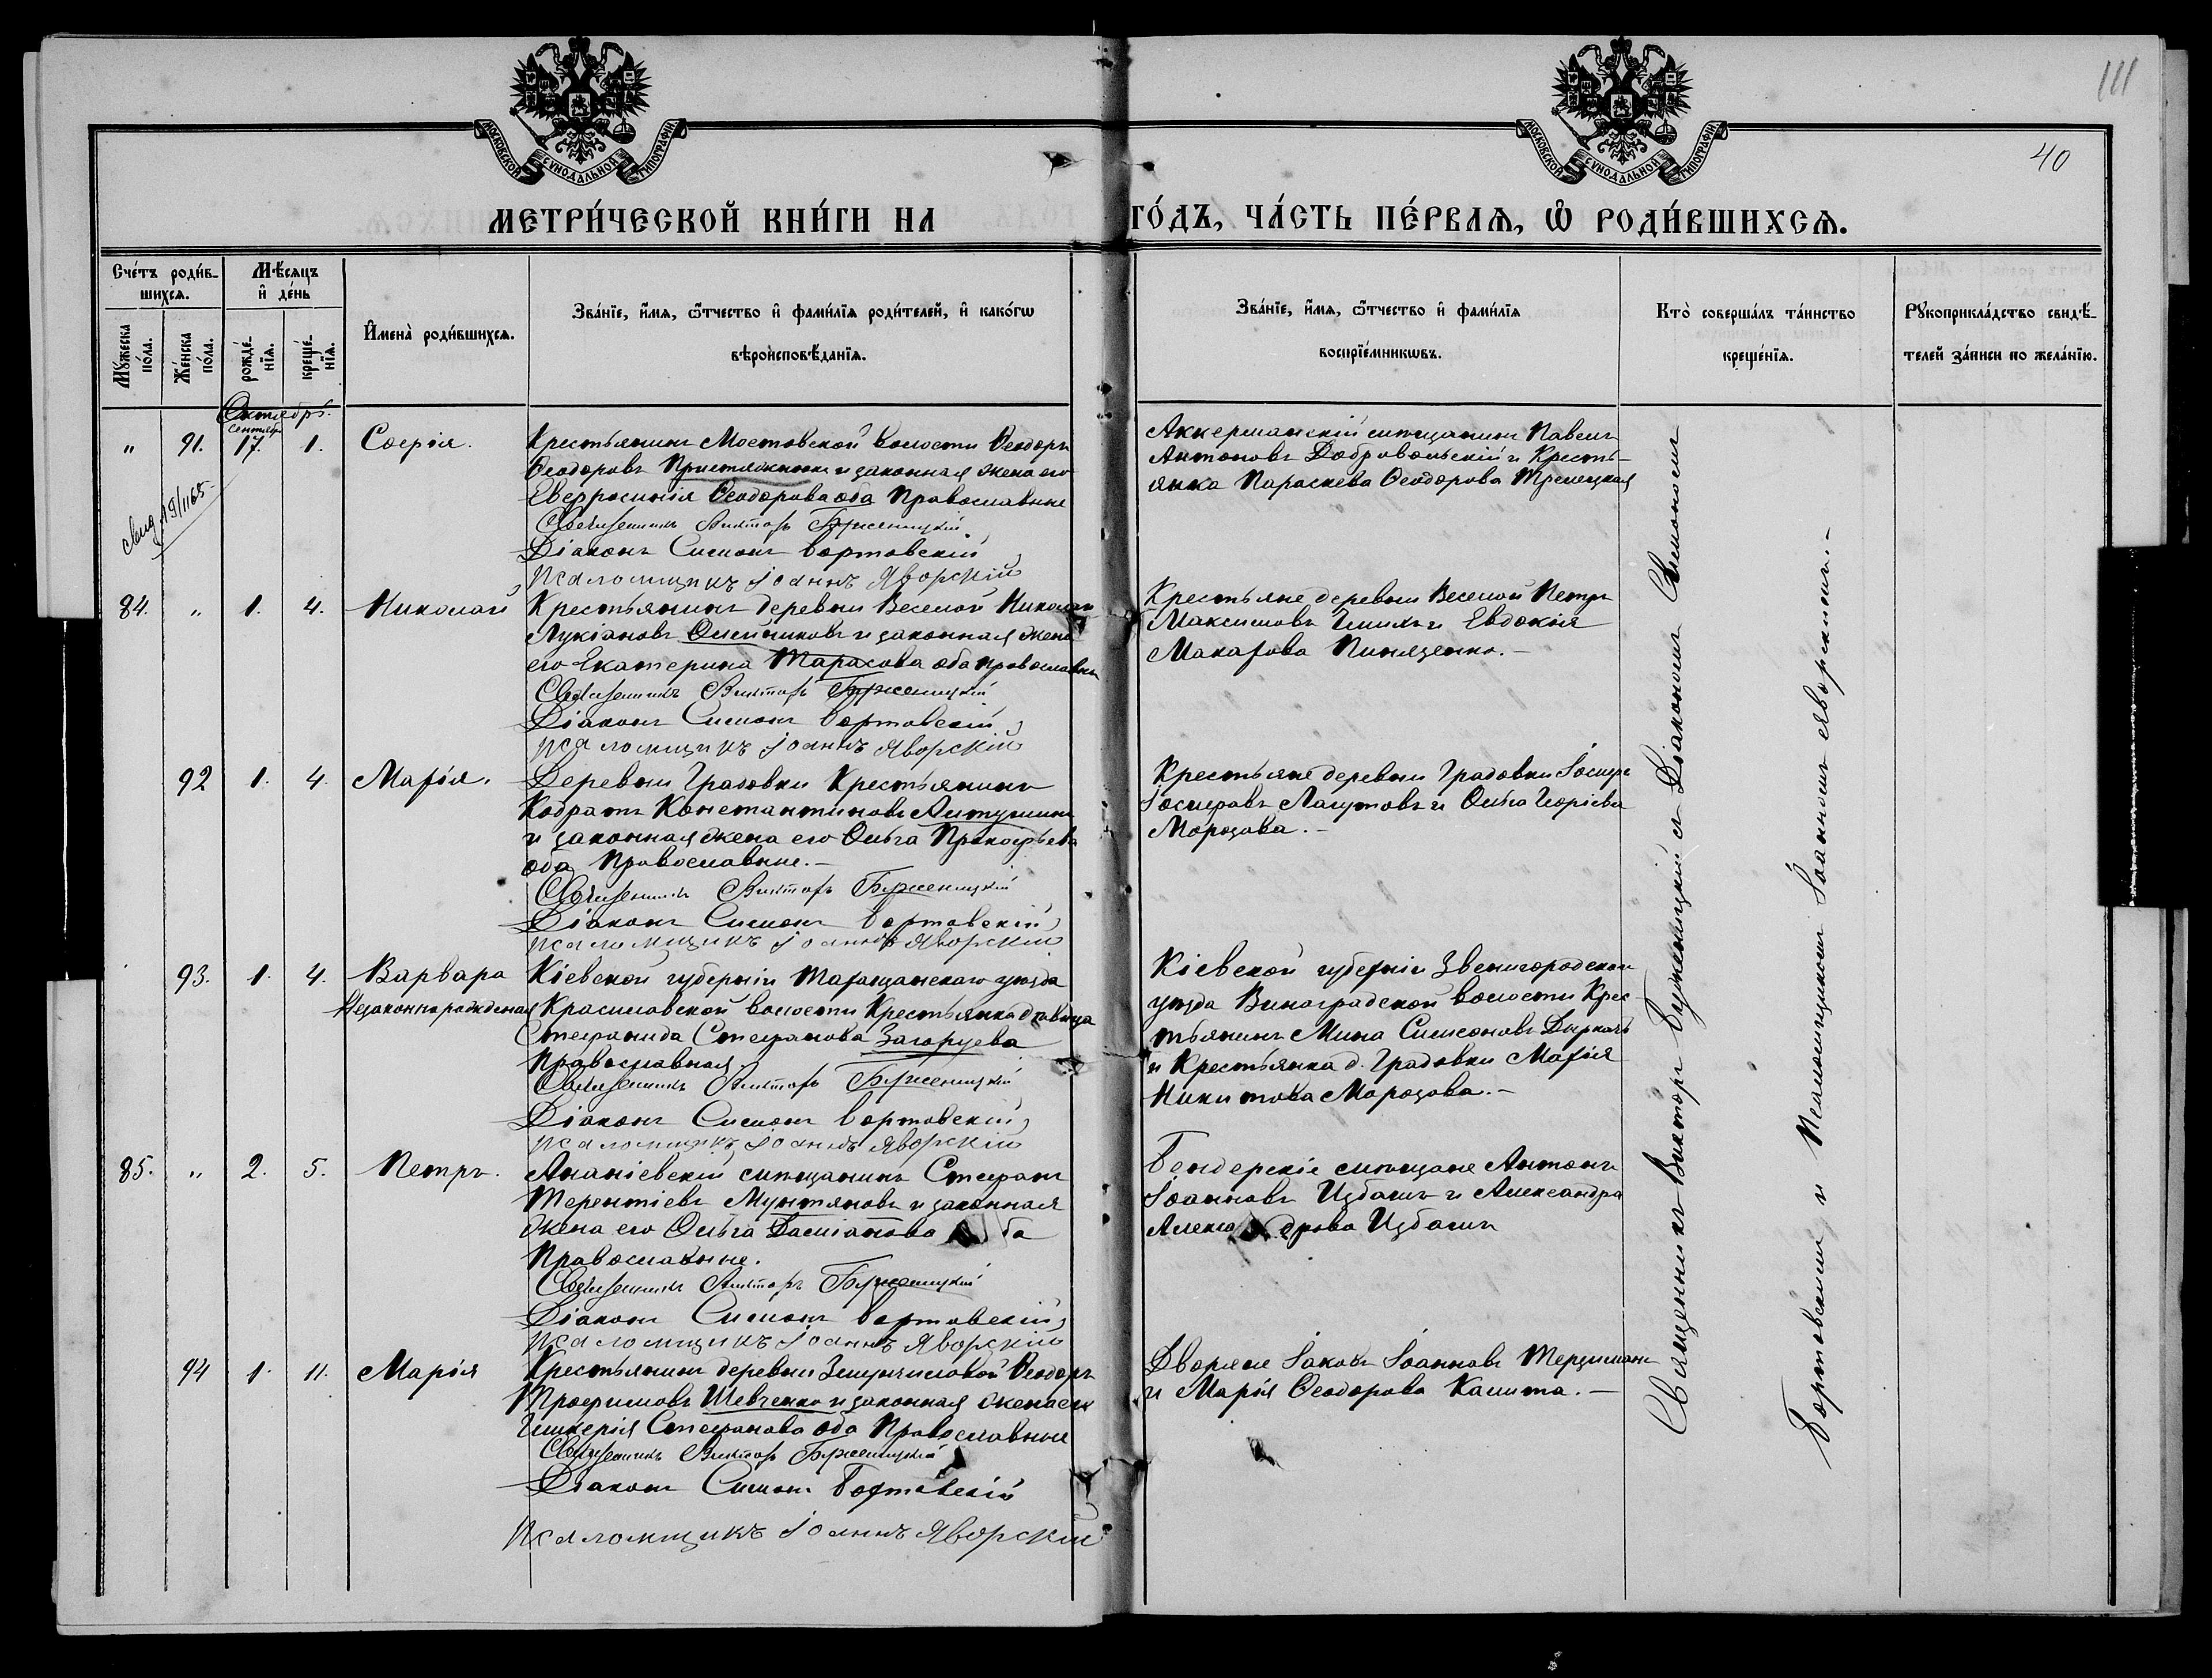 111
40
МОСКОВСКОЙ СѴНОДАЛЬНОЙ ТИПОГРАФІИ
МОСКОВСКОЙ СѴНОДАЛЬНОЙ ТИПОГРАФІИ
МЕТРИ́ЧЕСКОЙ КНИ́ГИ НА ГО́ДЪ, ЧА́СТЬ ПЕ́РВАѦ, Ѽ РОДИ́ВШИХСѦ.
Сче́тъ роди́в-
шихсѧ.
Мѣ́сяцъ
и҆ де́нь
Мꙋ́жеска по́ла.
Же́нска по́ла.
рожде́-
нїѧ.
креще́-
нїѧ.
И҆мена̀ роди́вшихсѧ.
Зва́нїе, и҆́мѧ, ѻ҆́тчество и҆ фами́лїѧ роди́телей, и҆ како́гѡ
вѣроисповѣ́данїѧ.
Зва́нїе, и҆́мѧ, ѻ҆́тчество и҆ фами́лїѧ
воспрїе́мникѡвъ.
Кто̀ соверша́лъ та́инство
креще́нїѧ.
Рꙋкоприкла́дство свидѣ́-
телей за́писи по жела́нїю.
Октябрь.
сентяб.
" 91. 17. 1. Софія.
Крестьянинъ Мостовской волости Ѳеодоръ
Ѳеодоровъ и законная жена его
Евфросинія Ѳеодорова оба Православные
Священникъ Викторъ Брженицкій
Діаконъ Симонъ Бортовскій
Псаломщикъ Іоаннъ Яворскій
Аккерманскій мѣщанинъ Павелъ
Антоновъ Добровольскій и Кресть-
янка Параскева Ѳеодорова
84. " 1. 4. Николай
Крестьянинъ деревни Веселой Николай
Лукіановъ Олейниковъ и законная жена
его Екатерина Тарасова оба православны
Священникъ Викторъ Брженицкій
Діаконъ Симонъ Бортовскій
Псаломщикъ Іоаннъ Яворскій
Крестьяне деревни Веселой Петръ
Максимовъ и Евдокія
Макарова
92 1. 4. Марія.
Деревни Градовки Крестьянинъ
Кодратъ Константиновъ
и законная жена его Ольга Прокофьева
оба Православные.-
Священникъ Викторъ Брженицкій
Діаконъ Симонъ Бортовскій
Псаломщикъ Іоаннъ Яворскій
Крестьяне деревни Градовки Іосифъ
Іосифовъ Лагутовъ и Ольга Георгіева
Морозова.-
93. 1. 4. Варвара
Незаконнорожденая
Кіевской губерніи Таращанскаго уѣзда
Красиловской волости Крестьянка дѣвица
Стефанида Стефанова Загоруева
Православная
Священникъ Викторъ Брженицкій
Діаконъ Симонъ Бортовскій
Псаломщикъ Іоаннъ Яворскій
Кіевской губерніи Звенигородскаго
уѣзда Виноградской волости Крес-
тьянинъ Мина Симеоновъ Деркачъ
и Крестьянка д. Градовки Марія
Никитова Морозова.-
85. " 2. 5. Петръ.
Ананіевскій мѣщанинъ Стефанъ
Терентіевъ Мунтяновъ и законная
жена его Ольга Даміанова оба
Православные.
Священникъ Викторъ Брженицкій
Діаконъ Симонъ Бортовскій
Псаломщикъ Іоаннъ Яворскій
Бендерскіе мѣщане Антонъ
Іоанновъ Избашъ и Александра
Александрова Избашъ
94 1. 11. Марія
Крестьянинъ деревни Ѳеодоръ
Трофимовъ Шевченко и законная жена его
Гликерія Стефанова оба Православные
Священникъ Викторъ Брженицкій
Діаконъ Симонъ Бортовскій
Псаломщикъ Іоаннъ Яворскій
Дворяне Іаковъ Іоанновъ
и Марія Ѳеодорова Калита.-
Священникъ Викторъ Брженицкій съ Діакономъ Симономъ
Бортовскимъ и Псаломщикомъ Іоанномъ Яворскимъ.-